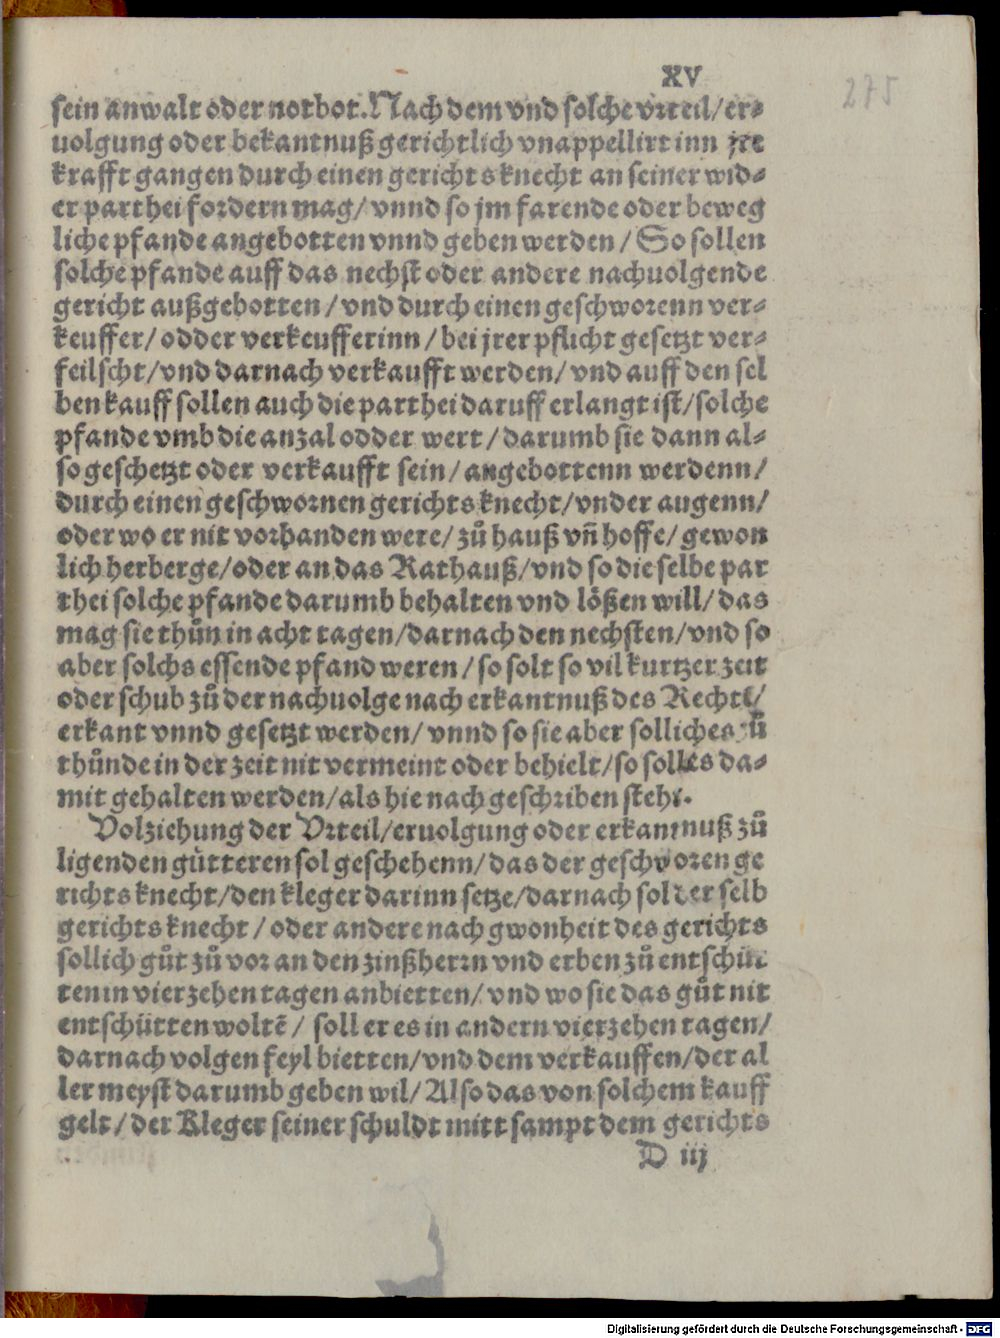 XV
275
sein anwalt oder notbot. Nach dem vnd solche vrteil/er-
uolgung oder bekantnuß gerichtlich vnappellirt inn jre
krafft gangen durch einen gerichts knecht an seiner wid-
er parthei fordern mag/ vnnd so jm farende oder beweg
liche pfande angebotten vnnd geben werden / So sollen
solche pfande auff das nechst oder andere nachuolgende
gericht außgebotten / vnd durch einen geschworenn ver-
keuffer/ odder verkeufferinn / bei jrer pflicht gesetzt ver-
feilscht/vnd darnach verkaufft werden/ vnd auff den sel
ben kauff sollen auch die parthei daruff erlangt ist/solche
pfande vmb die anzal odder wert / darumb sie dann al-
so geschetzt oder verkaufft sein/ angebottenn werdenn/
durch einen geschwornen gerichts knecht/vnder augenn/
oder wo er nit vorhanden were/ zů hauß vn̄ hoffe/ gewon
lich herberge/oder an das Rathauß/vnd so die selbe par
thei solche pfande darumb behalten vnd lößen will/ das
mag sie thůn in acht tagen/darnach den nechsten/vnd so
aber solchs essende pfand weren / so solt so vil kurtzer zeit
oder schub zů der nachuolge nach erkantnuß des Rechts/
erkant vnnd gesetzt werden/ vnnd so sie aber solliches zů
thůnde in der zeit nit vermeint oder behielt/so solles da-
mit gehalten werden/als hie nach geschriben steht.
Volziehung der Vrteil/eruolgung oder erkantnuß zů
ligenden gütteren sol geschehenn/ das der geschworen ge
richts knecht/den kleger darinn setze/darnach sol der selb
gerichts knecht / oder andere nach gwonheit des gerichts
sollich gůt zů vor an den zinßherrn vnd erben zů entschüt
ten in vierzehen tagen anbietten/ vnd wo sie das gůt nit
entschütten woltē / soll er es in andern vierzehen tagen/
darnach volgen feyl bietten/vnd dem verkauffen/der al
ler meyst darumb geben wil/ Also das von solchem kauff
gelt / der Kleger seiner schuldt mitt sampt dem gerichts
D iij
Digitalisierung gefördert durch die Deutsche Forschungsgemeinschaft - DFG